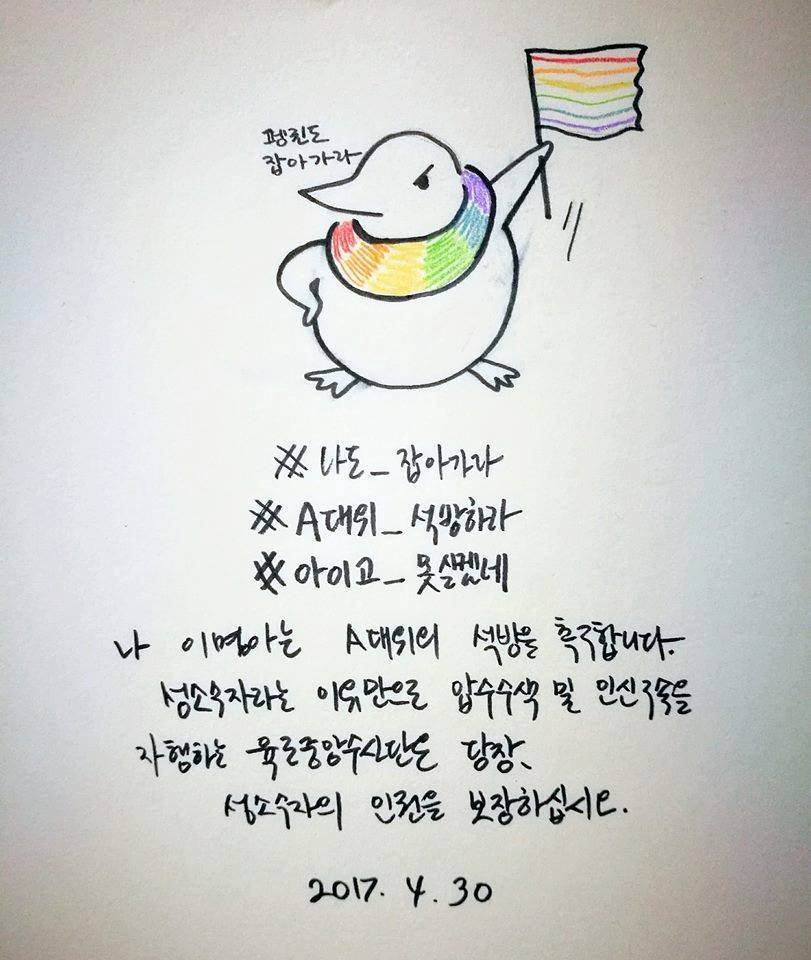 펭귄도
잡아가라
#나도_잡아가라
#A대위_석방하라
#아이고_못살겠네
나 이명아는 A대위의 석방을 촉구합니다.
성소수자라는 이유만으로 압수수색 및 인신구속을
자행하는 육군중앙수사단은 당장,
성소수자의 인권을 보장하십시오.
2017. 4. 30